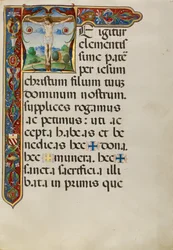 E igitur
clementis
sime pate᷑
per iesum
christum filium tuũ
dominum nostrum.
supplices rogamus
ac petimus: uti ac
cepta habeas et be
nedicas hec ✠ dona.
hec ✠ munera. hec ✠
sancta sacrificia illi
bata in primis que